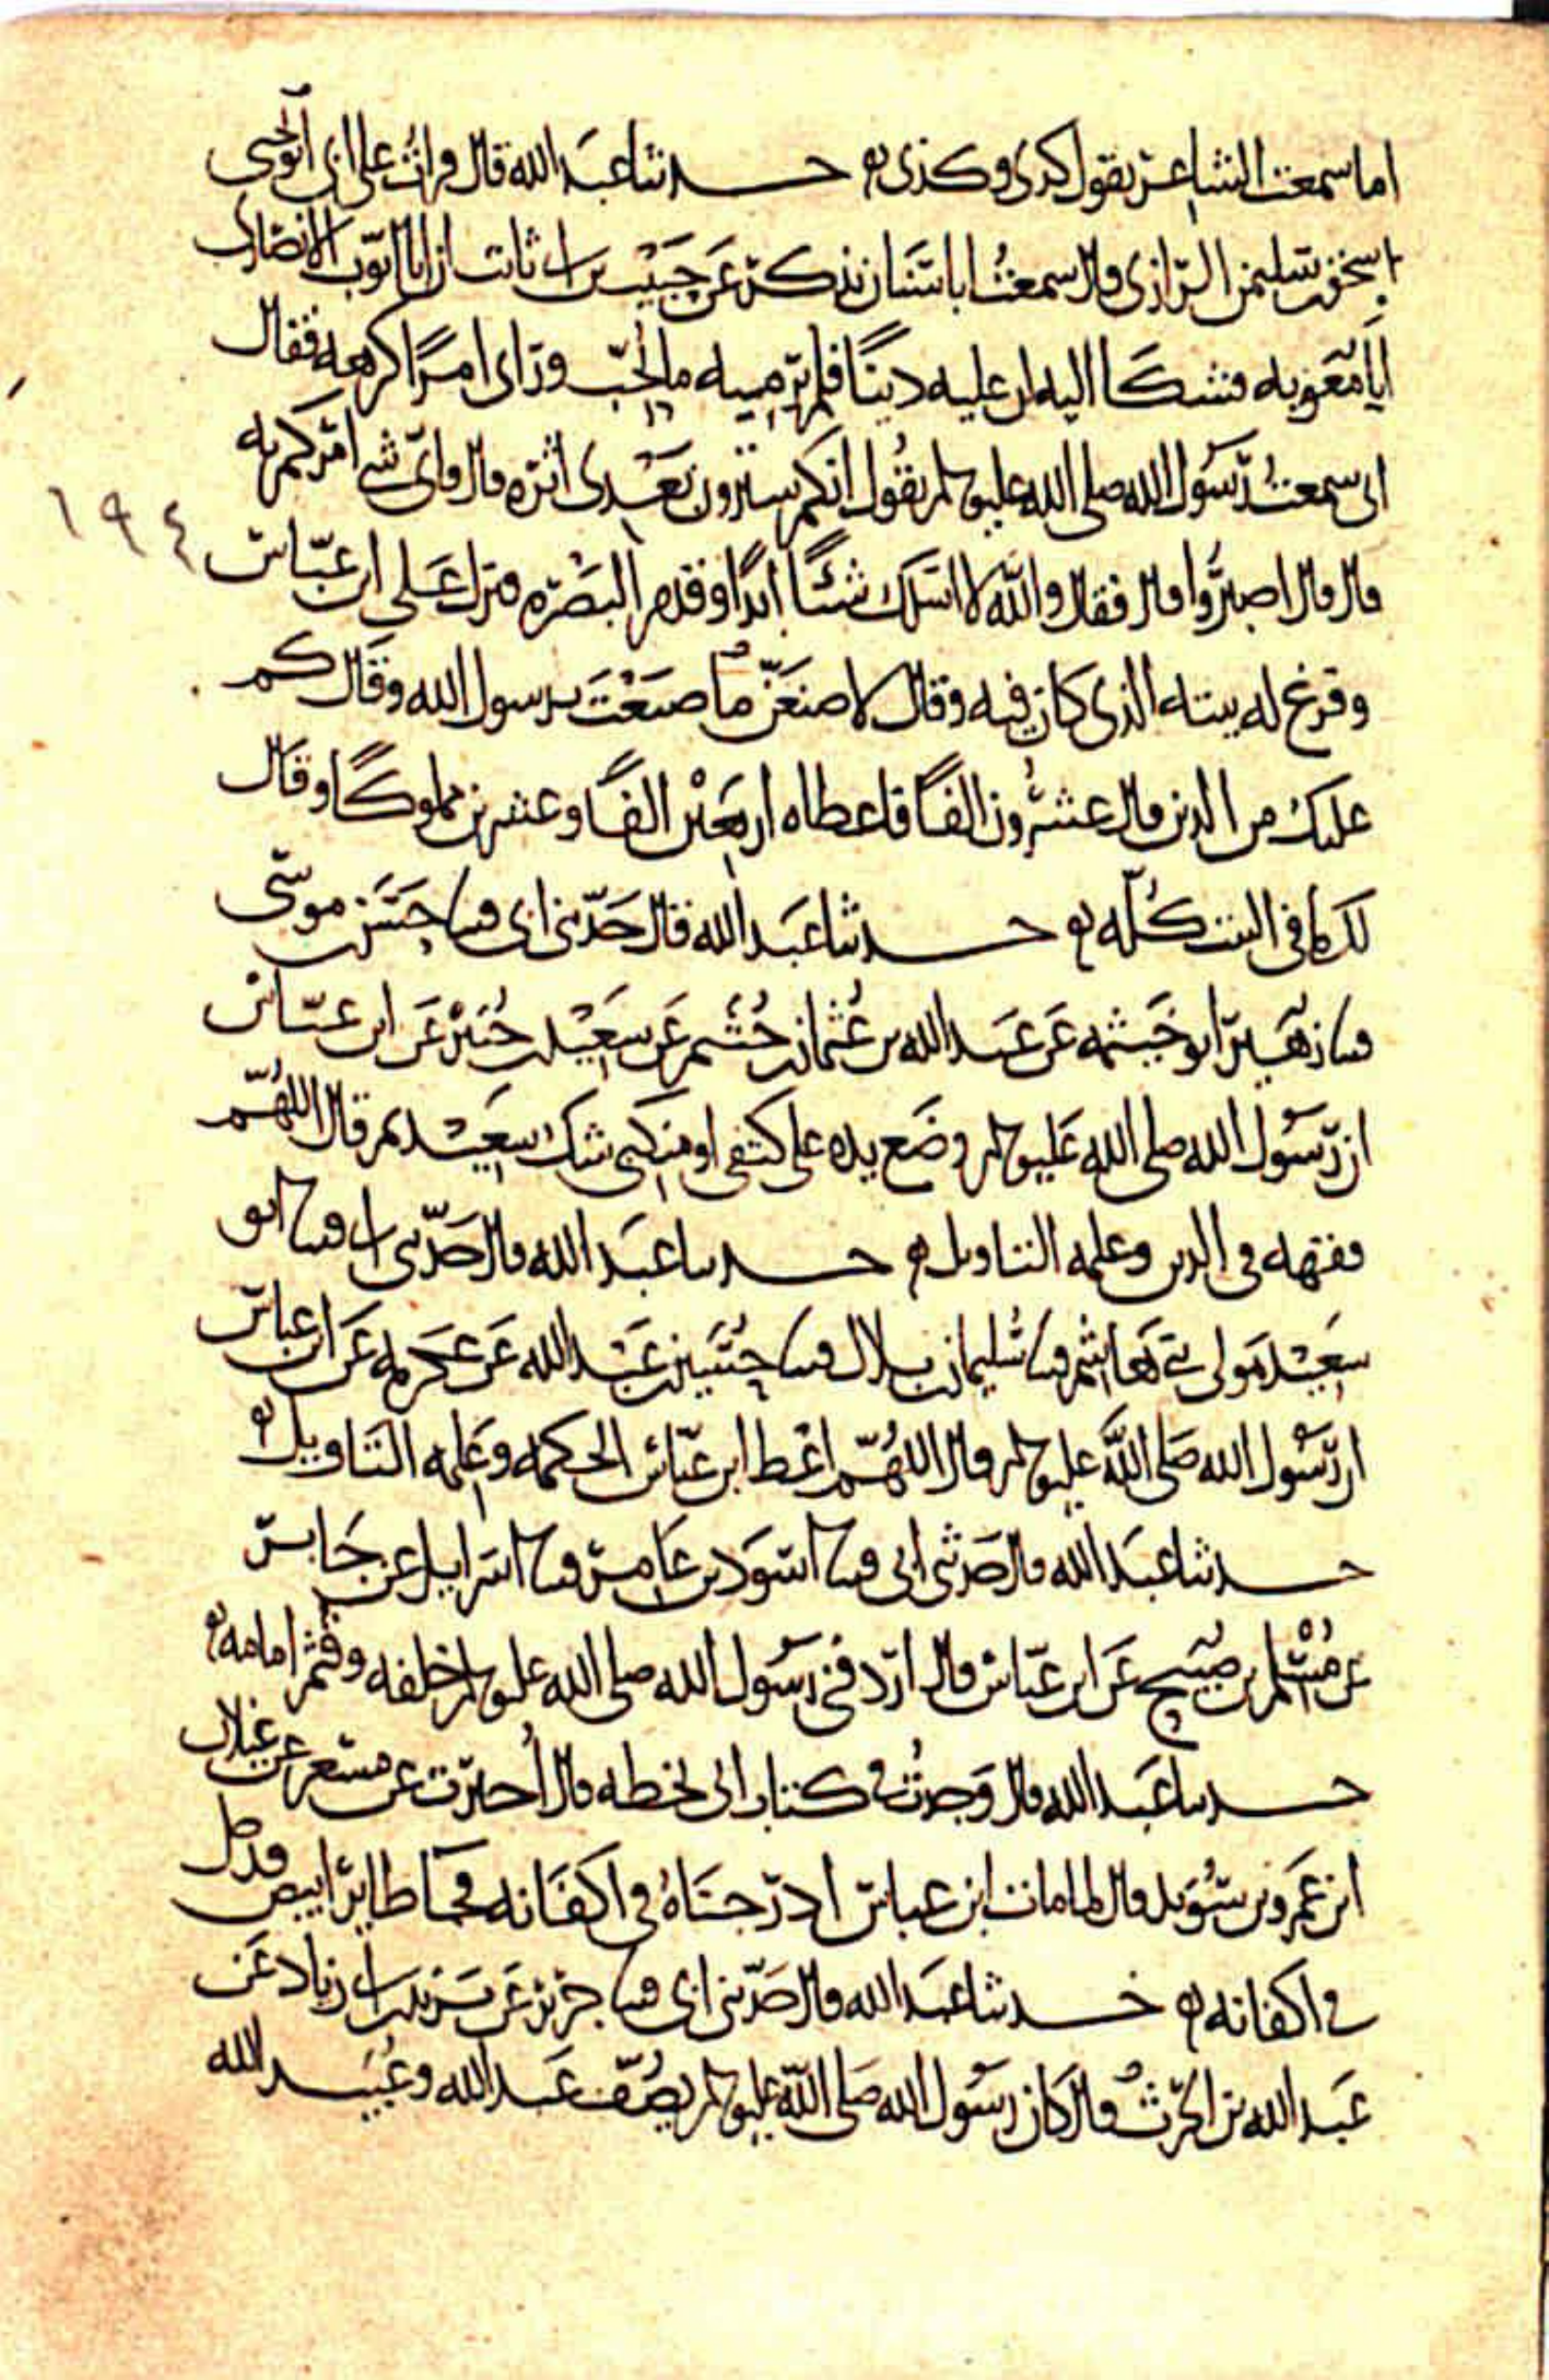 اما سمعت الشاعر يقول كذى وكذى حدثنا عبد الله قال قرات على ابي نا يحيى
اسحق بن سليمن الرازى قال سمعت ابا سنان يذكر عن حبيب بن ابى ثابت ان ابا ايوب الانصارى
اتا معويه فشكا اليه ان عليه دينا فلم ير منه ما يحب وراى امرا كرهه فقال
انى سمعت رسول الله صلى الله عليه وسلم يقول انكم سترون بعدى اثره قال واى شى امركم به
١٩٤
قال قال اصبروا قال فقال والله لا اسلك شئا ابدا وقدم البصره فنزل على ابن عباس
وفرغ له بيته الذى كان فيه وقال لاصنعن ما صنعت برسول الله وقال كم
عليك من الدين قال عشرون الفا فاعطاه اربعين الفا وعشرين مملوكا وقال
لك ما فى البيت كله حدثنا عبد الله قال حدثنى ابى قثنا حسن بن موسى
قثنا زهير ابو خيثمه عن عبد الله بن عثمان بن خثيم عن سعيد بن جبير عن ابن عباس
ان رسول الله صلى الله عليه وسلم وضع يده على كتفى او منكبى شك سعيد ثم قال اللهم
فقهه فى الدين وعلمه التاويل حدثنا عبد الله قال حدثنى ابى قثنا ابو
سعيد مولى بنى هاشم قثنا سليمان بن بلال قثنا حسين بن عبد الله عن عكرمه عن ابن عباس
ان رسول الله صلى الله عليه وسلم قال اللهم اعط ابن عباس الحكمه وعلمه التاويل
حدثنا عبد الله قال حدثنى ابى قثنا اسود بن عامر قثنا اسرايل عن جابر
عن مسلم بن صبيح عن ابن عباس قال اردفنى رسول الله صلى الله عليه وسلم خلفه وقثم امامه
حدثنا عبد الله قال وجدت فى كتاب ابى بخطه قال اخبرت عن مسعر عن غيلان
ابن عمرو بن سويد قال لما مات ابن عباس ادرجناه فى اكفانه فجا طاير ابيض فدخل
فى اكفانه حدثنا عبد الله قال حدثنى ابى قثنا جرير عن يزيد بن ابى زياد عن
عبد الله بن الحرث قال كان رسول الله صلى الله عليه وسلم يصف عبد الله وعبيد الله